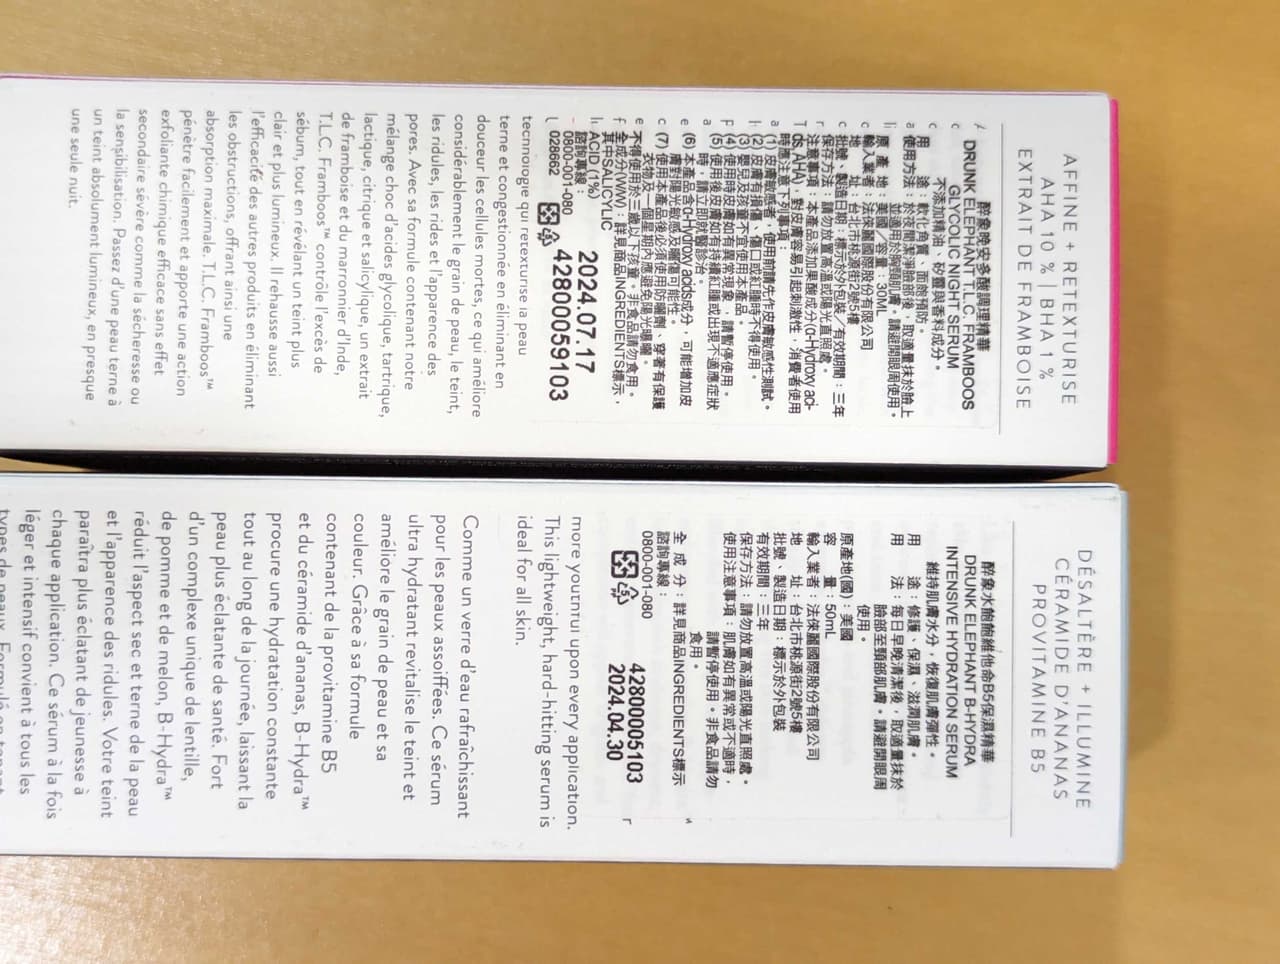 AFFINE + RETEXTURISE
AHA 10 % | BHA 1 %
EXTRAIT DE FRAMBOISE
醉象晚安多酸調理精華
DRUNK ELEPHANT T.L.C. FRAMBOOS
GLYCOLIC NIGHT SERUM
不添加精油、矽靈與香料成分。
用 途：軟化角質、面皰預防。
使用方法：於夜間潔淨臉部後，取適量抹於臉上
，也適用於胸頸肌膚。請避開眼周使用。
原 產 地：美國／容量：30ML
輸入業者：法徠麗國際股份有限公司
地 址：台北市桃源街2號5樓
批號、製造日期：標示於外包裝／有效期間：三年
保存方法：請勿放置高溫或陽光直照處。
注意事項：本產品添加果酸成分(α-Hydroxy aci-
ds,AHA)，對皮膚容易引起刺激性，消費者使用
時應注意下列事項：
(1) 皮膚敏感者，使用前請先作皮膚敏感性測試。
(2) 皮膚有損傷、傷口或紅腫時不得使用。
(3) 嬰兒及孩童不宜使用本產品。
(4) 使用時皮膚如有異常現象，請暫停使用。
(5) 使用後皮膚如有持續紅腫或出現不適應症狀
時，請立即就醫診治。
(6) 本產品含α-Hydroxy acids成分，可能增加皮
膚對陽光敏感及曬傷可能性。
(7) 使用本產品後必須使用防曬劑，穿著有保護
衣物及一個星期內應避免陽光曝曬。
不得使用於三歲以下孩童。非食品請勿食用。
全成分(W/W)：詳見商品INGREDIENTS標示，
其中SALICYLIC
ACID (1%)
諮詢專線：
0800-001-080
028662
2024.07.17
42800059103
technologie qui retexturise la peau
terne et congestionnée en éliminant en
douceur les cellules mortes, ce qui améliore
considérablement le grain de peau, le teint,
les ridules, les rides et l'apparence des
pores. Avec sa formule contenant notre
mélange choc d'acides glycolique, tartrique,
lactique, citrique et salicylique, un extrait
de framboise et du marronnier d'Inde,
T.L.C. Framboos™ contrôle l'excès de
sébum, tout en révélant un teint plus
clair et plus lumineux. Il rehausse aussi
l'efficacité des autres produits en éliminant
les obstructions, offrant ainsi une
absorption maximale. T.L.C. Framboos™
pénètre facilement et apporte une action
exfoliante chimique efficace sans effet
secondaire sévère comme la sécheresse ou
la sensibilisation. Passez d'une peau terne à
un teint absolument lumineux, en presque
une seule nuit.
DÉSALTÈRE + ILLUMINE
CÉRAMIDE D'ANANAS
PROVITAMINE B5
醉象水飽飽維他命B5保濕精華
DRUNK ELEPHANT B-HYDRA
INTENSIVE HYDRATION SERUM
維持肌膚水分，恢復肌膚彈性。
用 途：修護、保濕、滋潤肌膚。
用 法：每日早晚清潔後，取適量抹於
臉部至頸部肌膚，請避開眼周
使用。
原產地(國)：美國
容 量：50mL
輸入業者：法徠麗國際股份有限公司
地 址：台北市桃源街2號5樓
批號、製造日期：標示於外包裝
有效期間：三年
保存方法：請勿放置高溫或陽光直照處。
使用注意事項：肌膚如有異常或不適時，
請暫停使用。非食品請勿
食用。
全 成 分：詳見商品INGREDIENTS標示
諮詢專線：
0800-001-080
42800005103
2024.04.30
more youthful upon every application.
This lightweight, hard-hitting serum is
ideal for all skin.
Comme un verre d'eau rafraîchissant
pour les peaux assoiffées. Ce sérum
ultra hydratant revitalise le teint et
améliore le grain de peau et sa
couleur. Grâce à sa formule
contenant de la provitamine B5
et du céramide d'ananas, B-Hydra™
procure une hydratation constante
tout au long de la journée, laissant la
peau plus éclatante de santé. Fort
d'un complexe unique de lentille,
de pomme et de melon, B-Hydra™
réduit l'aspect sec et terne de la peau
et l'apparence des ridules. Votre teint
paraîtra plus éclatant de jeunesse à
chaque application. Ce sérum à la fois
léger et intensif convient à tous les
types de peaux. Formulé en tenant